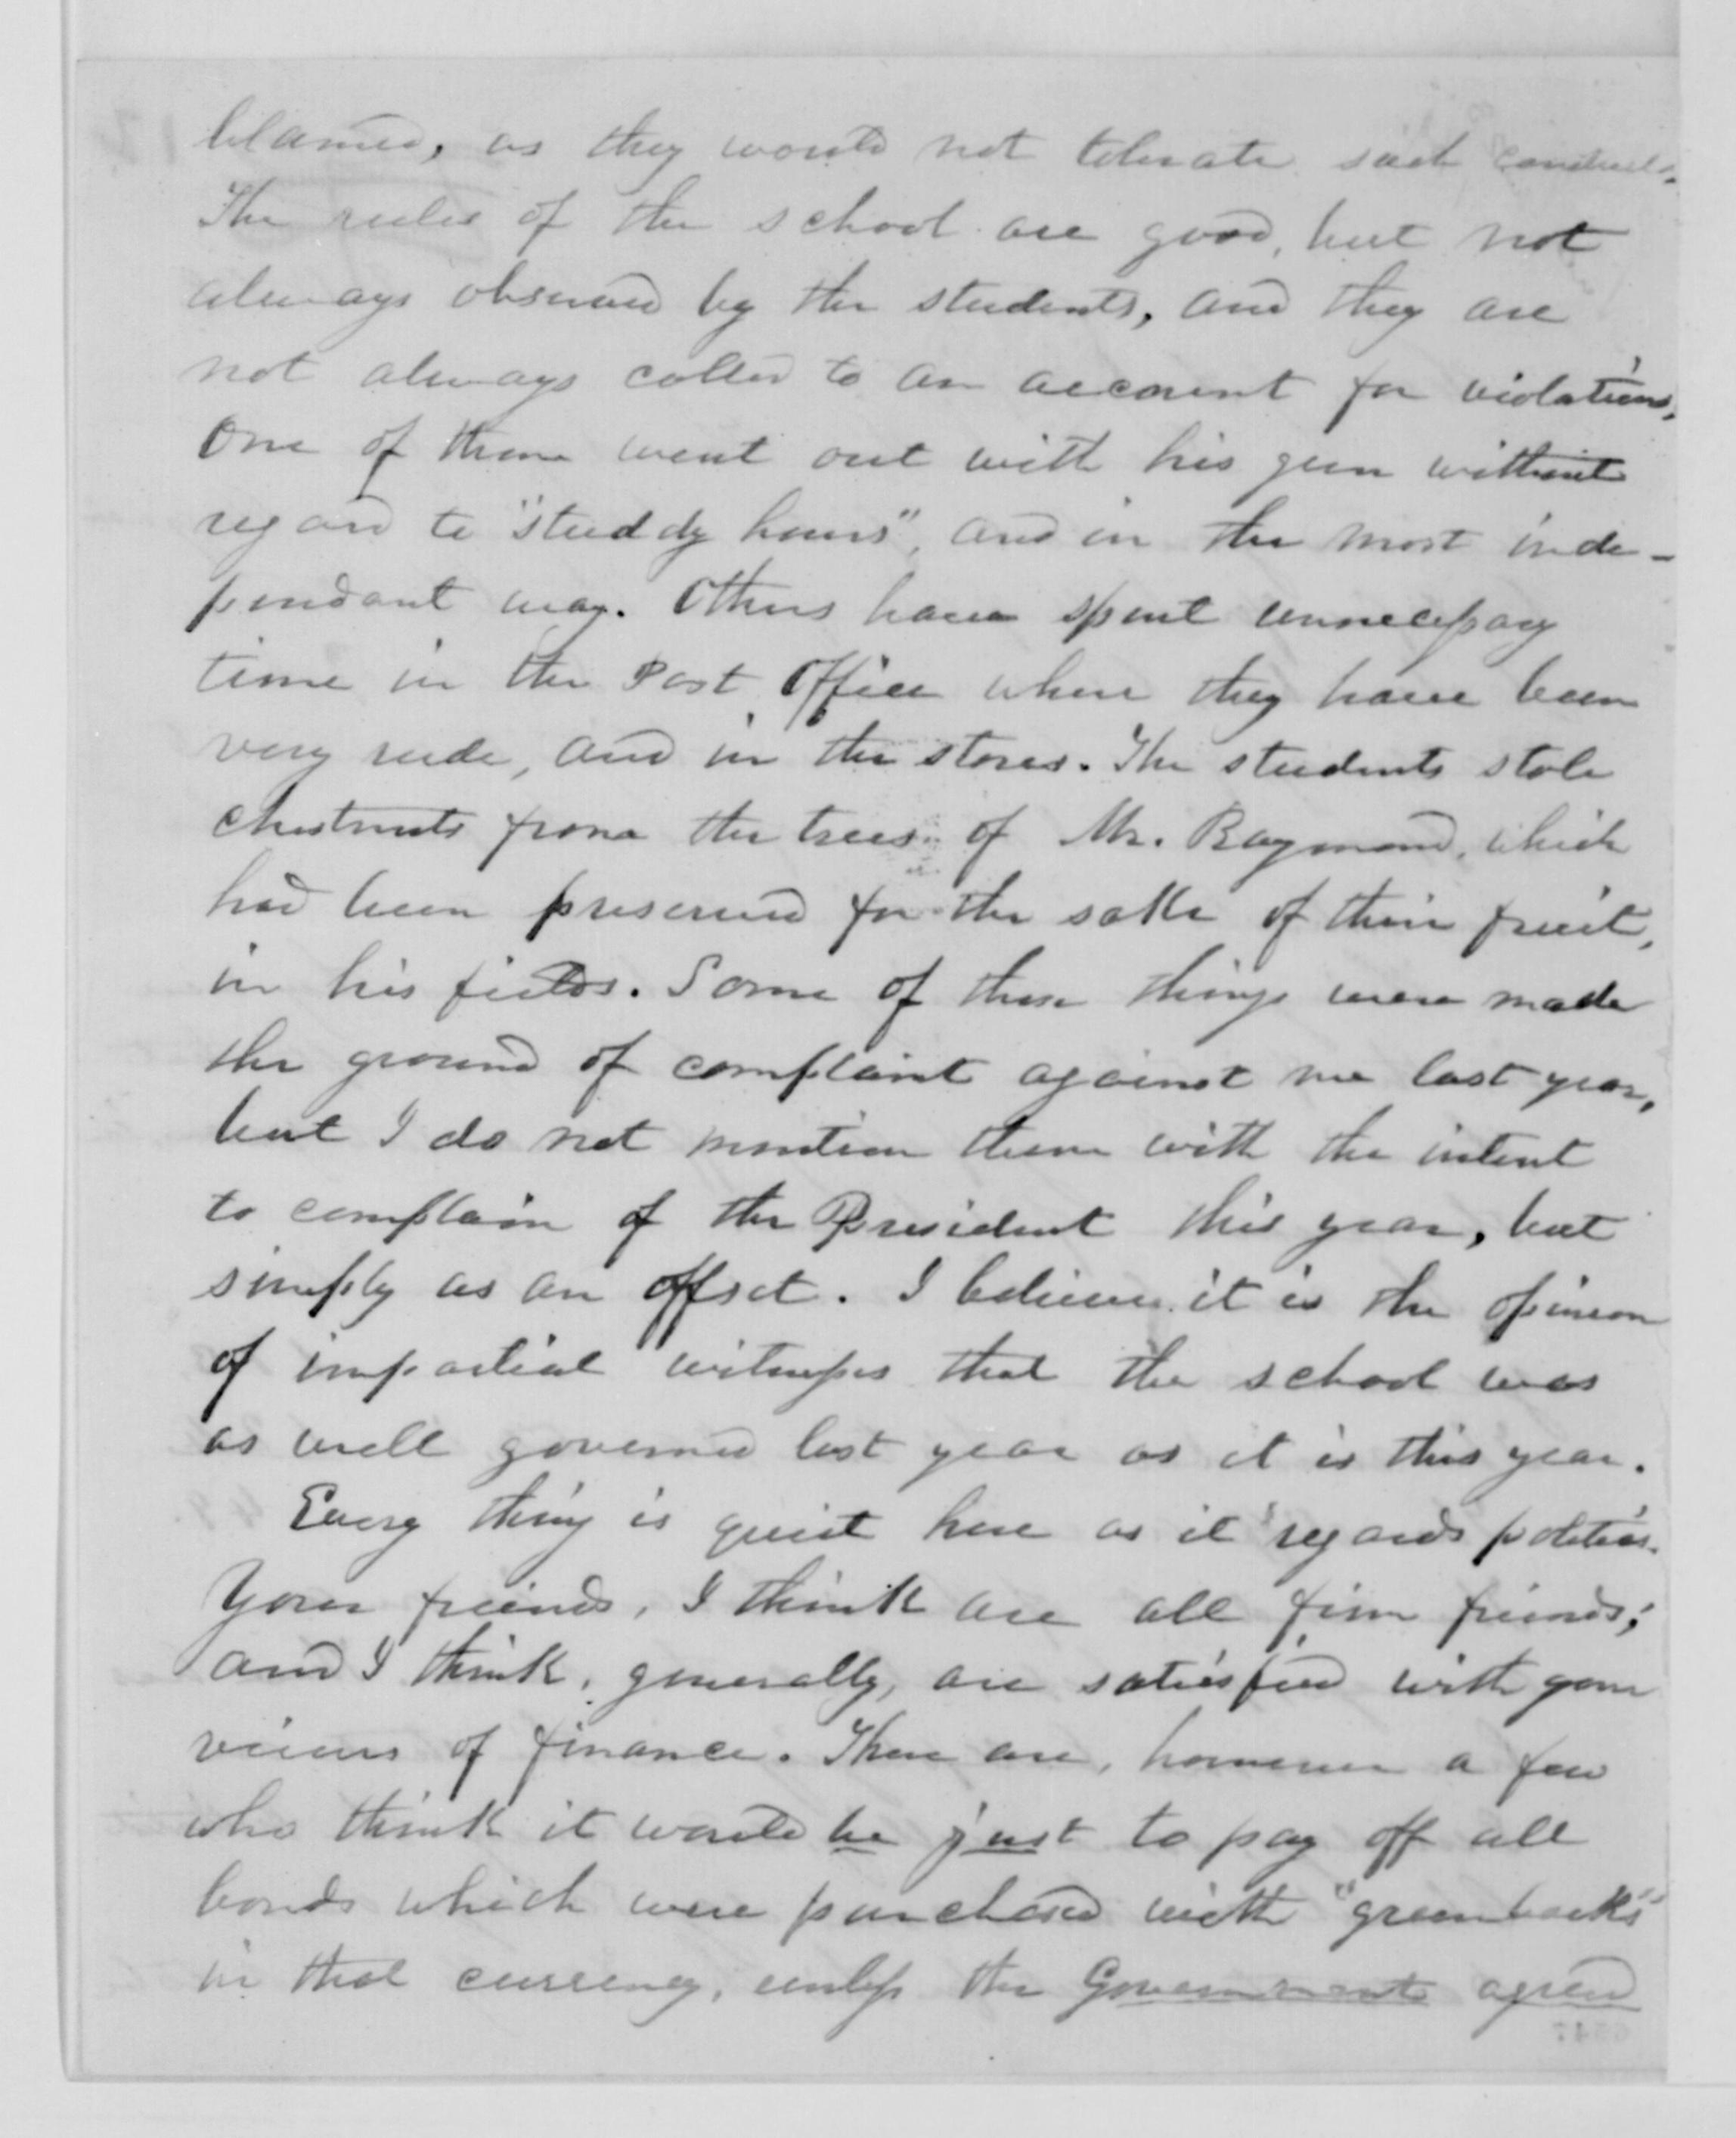 blamed, as they would not tolerate such conduct.
The rules of the school are good, but not
always observed by the students, and they are
not always called to an account for violations.
One of them went out with his gun without
regard to "studdy hours", and in the most inde-
pendant way. Others have spent unnecessary
time in the Post Office where they have been
very rude, and in the stores. The students stole
chestnuts from the trees of Mr. Raymond, which
had been preserved for the sake of their fruit,
in his fields. Some of these things were made
the ground of complaint against me last year,
but I do not mention them with the intent
to complain of the President this year, but
simply as an offset. I believe it is the opinion
of impartial witnesses that the school was
as well governed last year as it is this year.
Every thing is quiet here as it regards politics.
Your friends, I think are all firm friends;
and I think, generally, are satisfied with your
views of finance. There are, however a few
who think it would be just to pay off all
bonds which were purchased with "greenbacks"
in that currency, unless the Government agreed